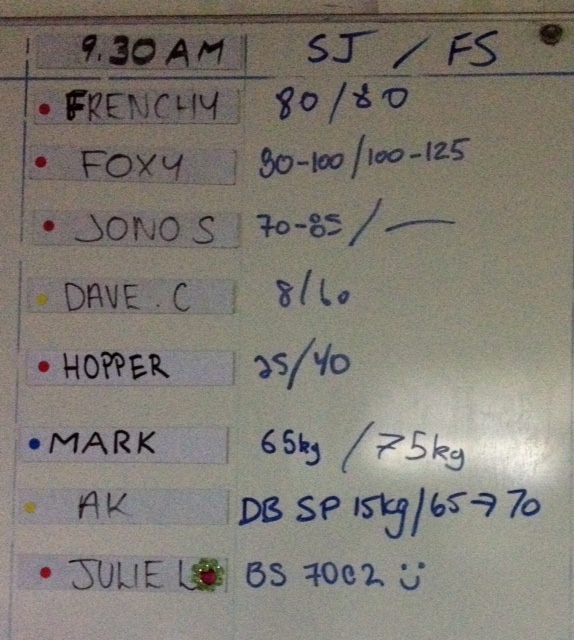 9.30 AM SJ / FS
FRENCHY 80/80
FOXY 80-100/100-125
JONO S 70-85/—
DAVE. C 8/60
HOPPER 25/40
MARK 65kg /75kg
AK DB SP 15kg/65→70
JULIE L BS 70C2 :)